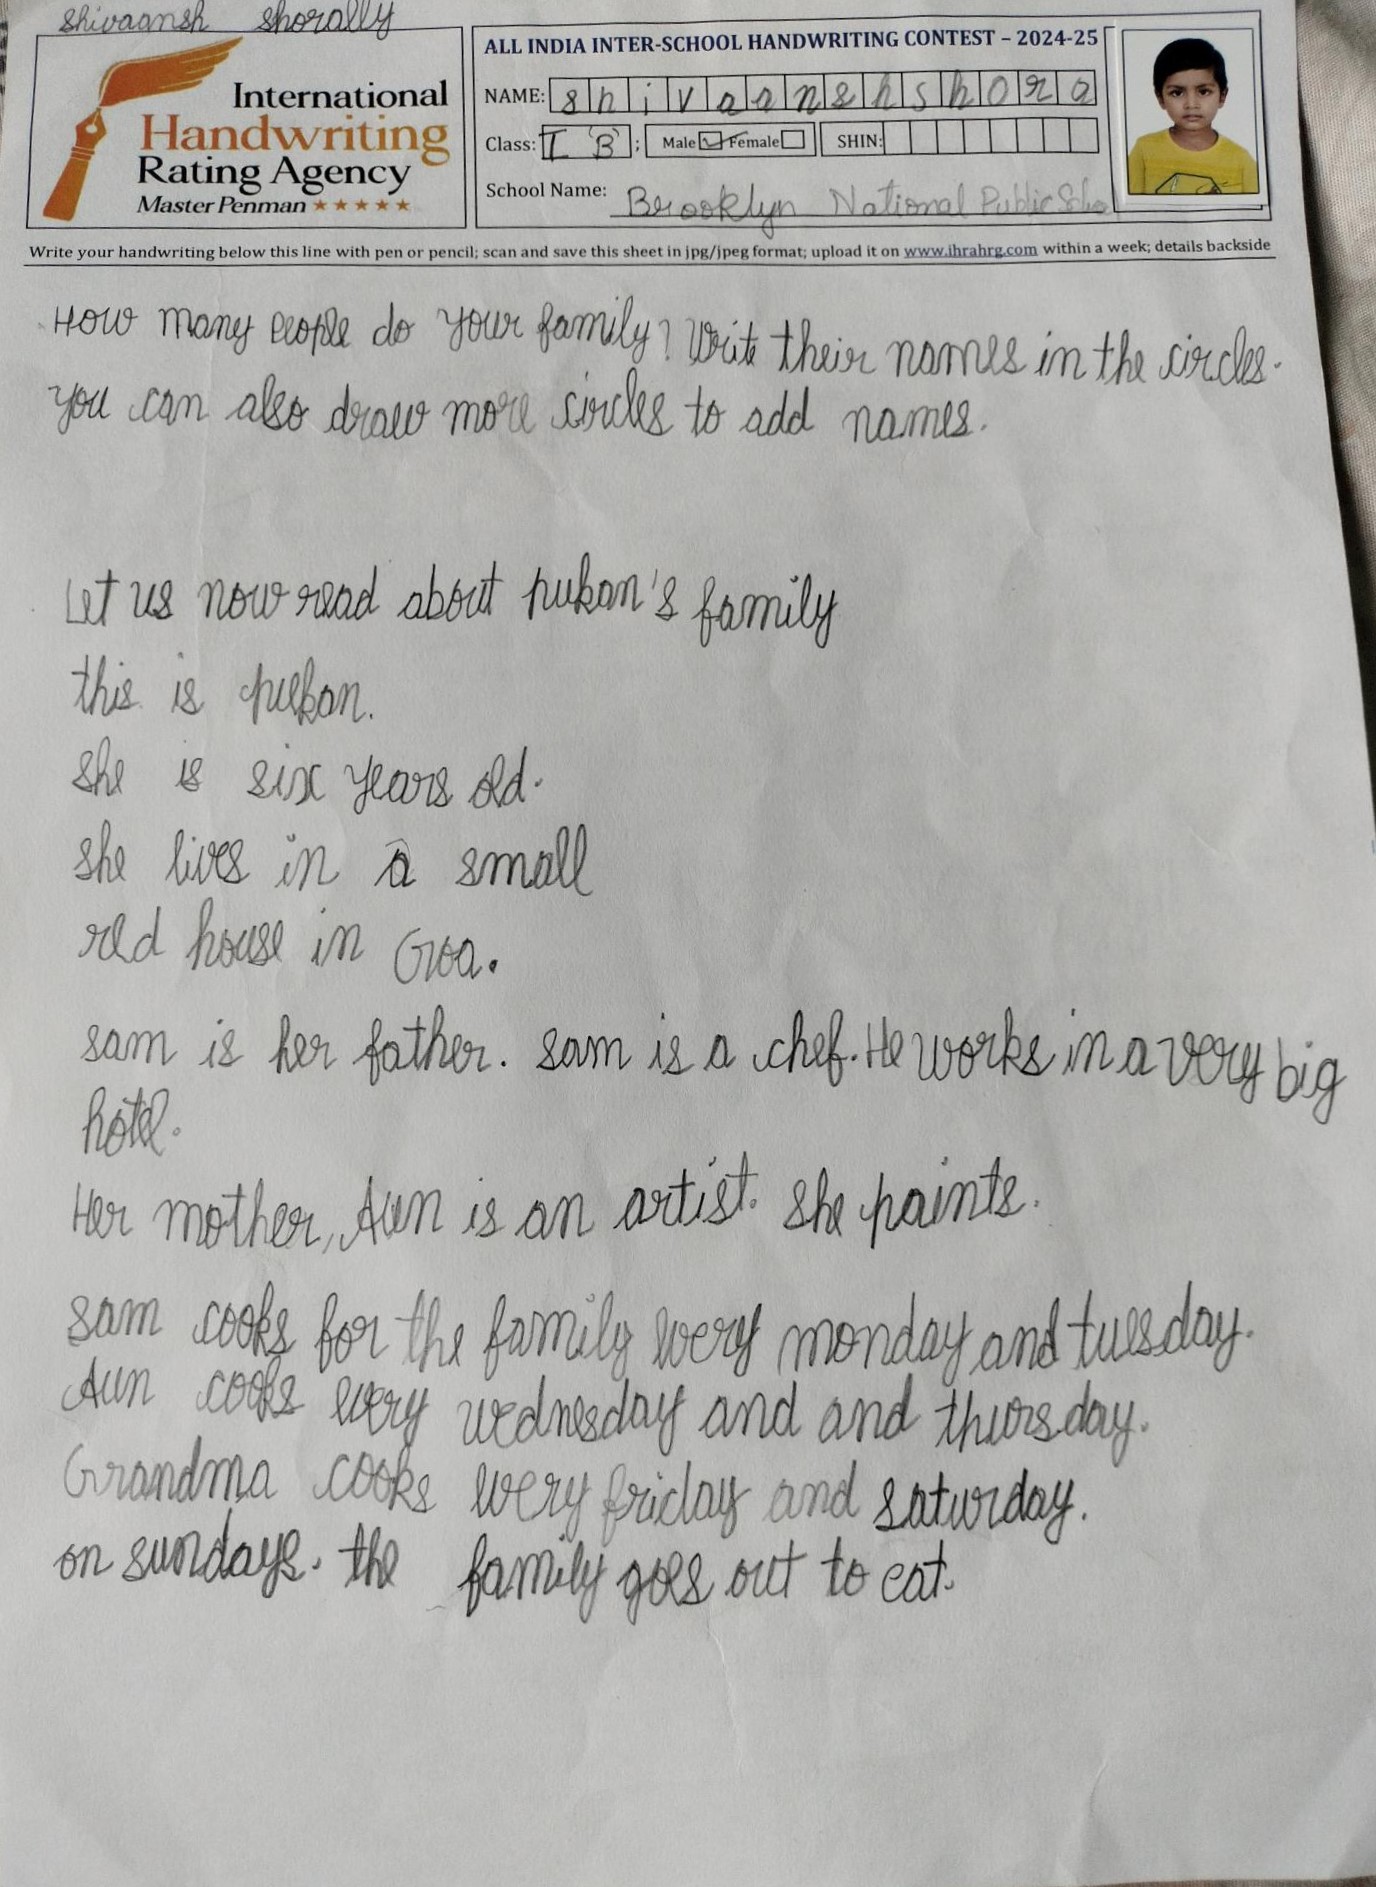 Shivaansh Shorally
ALL INDIA INTER-SCHOOL HANDWRITING CONTEST – 2024-25
International
Handwriting
Rating Agency
Master Penman ★★★★★
NAME: s h i v a a n s h s h o r a
Class: I B ; Male Female SHIN:
School Name: Brooklyn National Public Scho
Write your handwriting below this line with pen or pencil; scan and save this sheet in jpg/jpeg format; upload it on www.ihrahrg.com within a week; details backside
How many people do your family? Write their names in the circles.
you can also draw more circles to add names.
Let us now read about pukan's family
this is pukan.
she is six years old.
she lives in a small
red house in Goa.
sam is her father. sam is a chef. He works in a very big
hotel.
Her mother, Aun is an artist. she paints.
sam cooks for the family every monday and tuesday.
Aun cooks every wednesday and and thursday.
Grandma cooks every friday and saturday.
on sundays. the family goes out to eat.